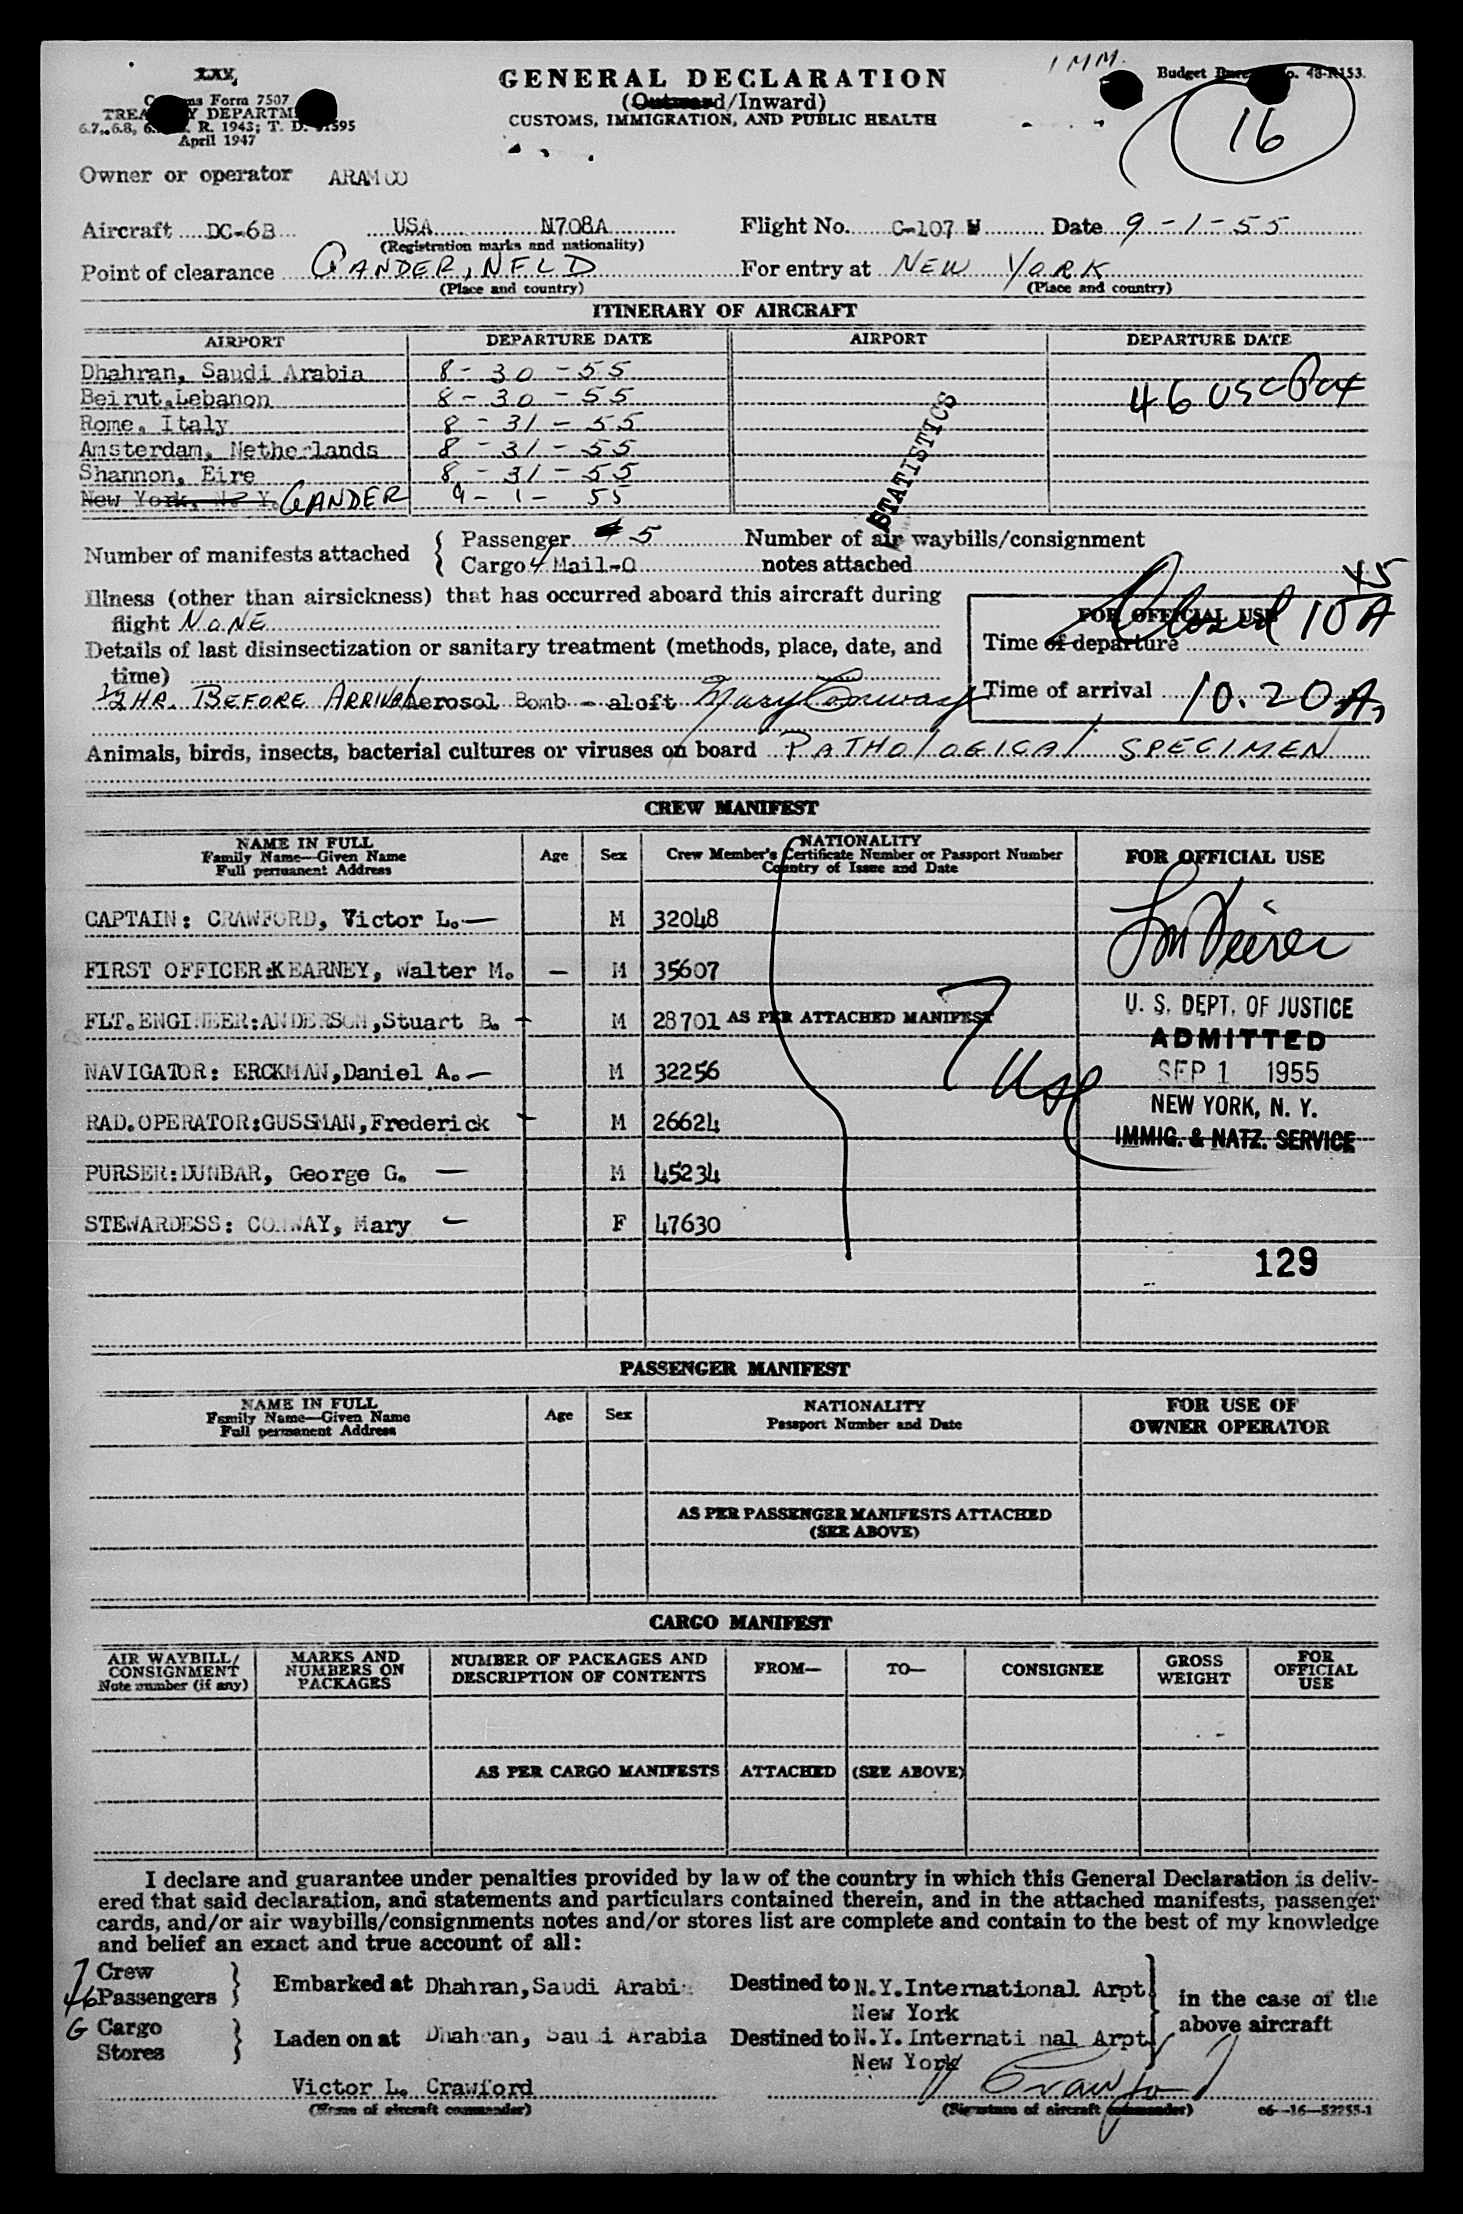 1 MM.
GENERAL DECLARATION
Budget No. 48-R153.
Form 7507
(Outward/Inward)
16
6.7, 6.8, R. 1943; T. D. 51595
CUSTOMS, IMMIGRATION, AND PUBLIC HEALTH
April 1947
Owner or operator ARAMCO
Aircraft DC-6B USA N708A Flight No. C-107 Date 9-1-55
(Registration marks and nationality)
Point of clearance GANDER, NFLD For entry at NEW YORK
(Place and country) (Place and country)
ITINERARY OF AIRCRAFT
AIRPORT DEPARTURE DATE AIRPORT DEPARTURE DATE
Dhahran, Saudi Arabia 8-30-55
Beirut,Lebanon 8-30-55 46 USC Pax
Rome, Italy 8-31-55
Amsterdam, Netherlands 8-31-55
Shannon, Eire 8-31-55
New York, N. Y. GANDER 9-1-55
STATISTICS
Number of manifests attached { Passenger 5 Number of air waybills/consignment
Cargo 4 Mail-0 notes attached
Illness (other than airsickness) that has occurred aboard this aircraft during
flight NONE
FOR OFFICIAL USE
Closed 10 45 A
Details of last disinsectization or sanitary treatment (methods, place, date, and
time)
Time of departure
1/2 HR. BEFORE ARRIVAL Aerosol Bomb - aloft Mary Conway
Time of arrival 10.20 A,
Animals, birds, insects, bacterial cultures or viruses on board PATHOLOGICAL SPECIMEN
CREW MANIFEST
NAME IN FULL
Family Name—Given Name
Full permanent Address
Age
Sex
NATIONALITY
Crew Member's Certificate Number or Passport Number
Country of Issue and Date
FOR OFFICIAL USE
CAPTAIN: CRAWFORD, Victor L.— M 32048
FIRST OFFICER:KEARNEY, Walter M. — M 35607
FLT.ENGINEER:ANDERSON,Stuart B. - M 28701 AS PER ATTACHED MANIFEST
NAVIGATOR: ERCKMAN,Daniel A.— M 32256
RAD.OPERATOR:GUSSMAN,Frederick - M 26624
PURSER:DUNBAR, George G. — M 45234
STEWARDESS: CONWAY, Mary - F 47630
7 USC
U. S. DEPT. OF JUSTICE
ADMITTED
SEP 1 1955
NEW YORK, N. Y.
IMMIG. & NATZ. SERVICE
129
PASSENGER MANIFEST
NAME IN FULL
Family Name—Given Name
Full permanent Address
Age
Sex
NATIONALITY
Passport Number and Date
FOR USE OF
OWNER OPERATOR
AS PER PASSENGER MANIFESTS ATTACHED
(SEE ABOVE)
CARGO MANIFEST
AIR WAYBILL/
CONSIGNMENT
Note number (if any)
MARKS AND
NUMBERS ON
PACKAGES
NUMBER OF PACKAGES AND
DESCRIPTION OF CONTENTS
FROM—
TO—
CONSIGNEE
GROSS
WEIGHT
FOR
OFFICIAL
USE
AS PER CARGO MANIFESTS ATTACHED (SEE ABOVE)
I declare and guarantee under penalties provided by law of the country in which this General Declaration is deliv-
ered that said declaration, and statements and particulars contained therein, and in the attached manifests, passenger
cards, and/or air waybills/consignments notes and/or stores list are complete and contain to the best of my knowledge
and belief an exact and true account of all:
7 Crew
46 Passengers } Embarked at Dhahran,Saudi Arabia Destined to N.Y.International Arpt
New York
in the case of the
above aircraft
G Cargo
Stores } Laden on at Dhahran, Saudi Arabia Destined to N.Y.International Arpt
New York
Victor L. Crawford V Crawford
(Name of aircraft commander) (Signature of aircraft commander) c6—16—52255-1